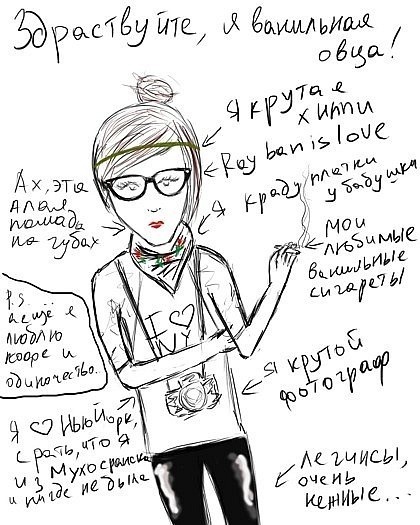 Здраствуйте, я ванильная
овца!
я крутая
хиппи
Ray ban is love
я краду платки
у бабушки
Ах, эта
алая
помада
на губах
мои
любимые
ванильные
сигареты
P.S.
а ещё я
люблю
кофе и
одиночество..
I ♡
NY
я крутой
фотограф
Я ♡ Нью Йорк,
срать, что я
из Мухосранска
и нигде не была
легинсы,
очень
нежные...